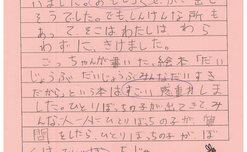 そうでした。でも、しんけんな所も
あって、そこはわたしは、わら
わずに、きけました。
こっちゃんが書いた絵本「だい
じょうぶだいじょうぶみんなだいすき
だから」という本はすごい感動しま
した。ひとりぼっちの子が出てきてみ
んな、一人一人にひとりぼっちの子が質
問をしたらひとりぼっちの子がば